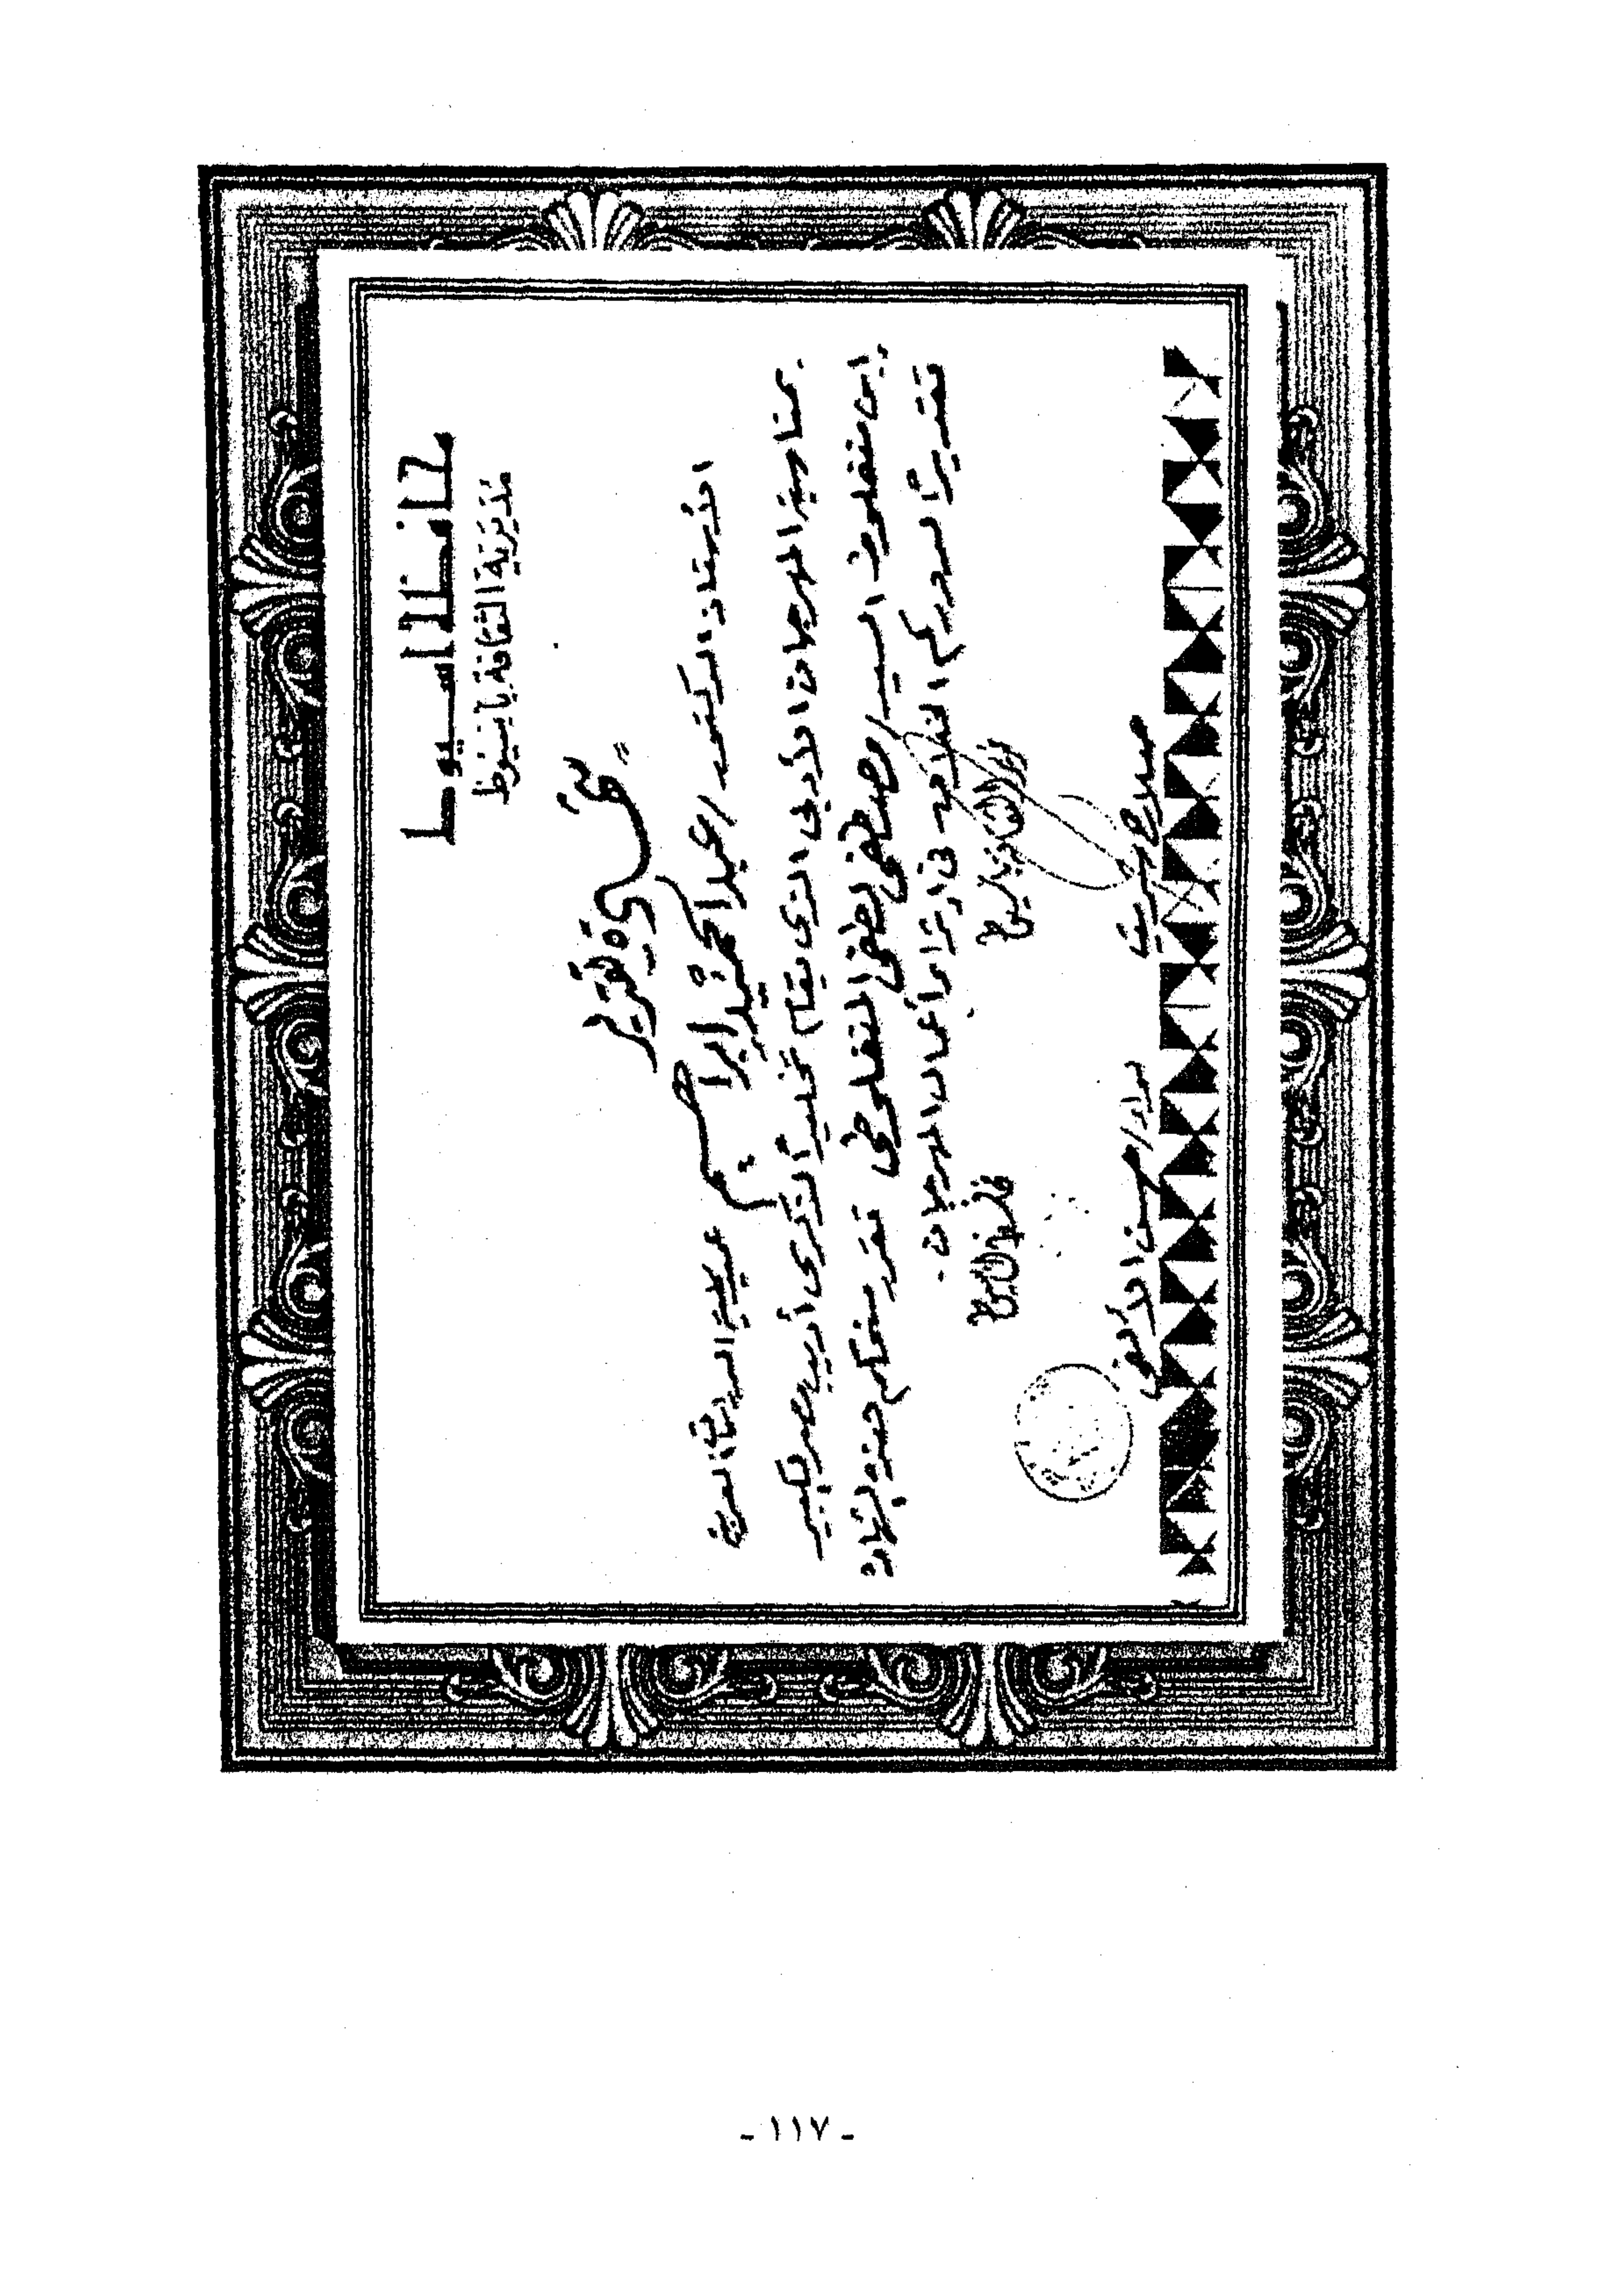 محافظة أسيوط
مديرية الثقافة بأسيوط
شهادة تقدير
الأستاذ الدكتور / عبد الحميد إبراهيم عميد كلية الدراسات العربية
بمناسبة المهرجان الأدبي الذي يقام تخليداً لذكرى أديب مصر الكبير
إبن منفلوط السيد / مصطفى لطفى المنفلوطى نقدر منحكم هذه الشهادة
تقديراً لدوركم الخلاق فى إثراء أعمال المهرجان .
مدير الثقافة بأسيوط
محافظ أسيوط
صلاح شريت
لواء / حسن الألفى
- ١١٧ -